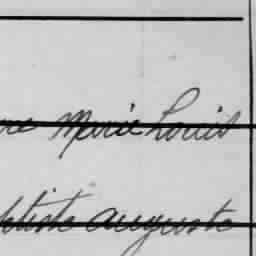 re Marie Louis
ptiste auguste